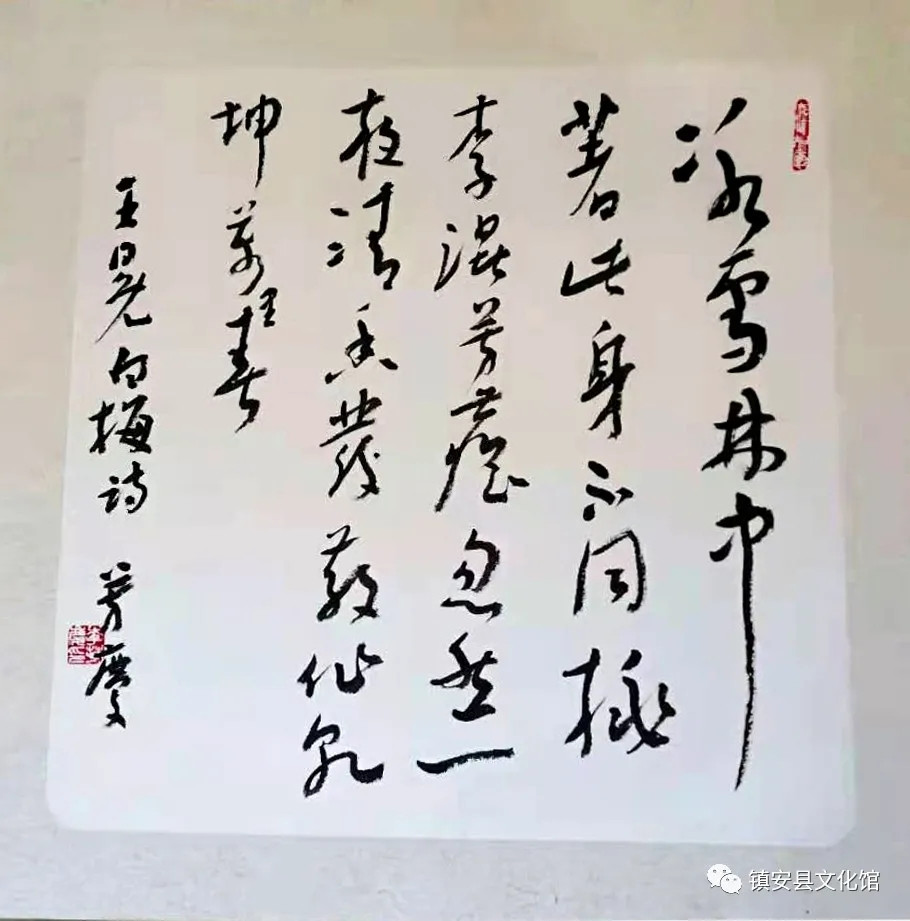 冰雪林中
著此身不同桃
李混芳塵忽然一
夜清香發散作乾
坤萬里春
王冕白梅诗 芳慶
镇安县文化馆